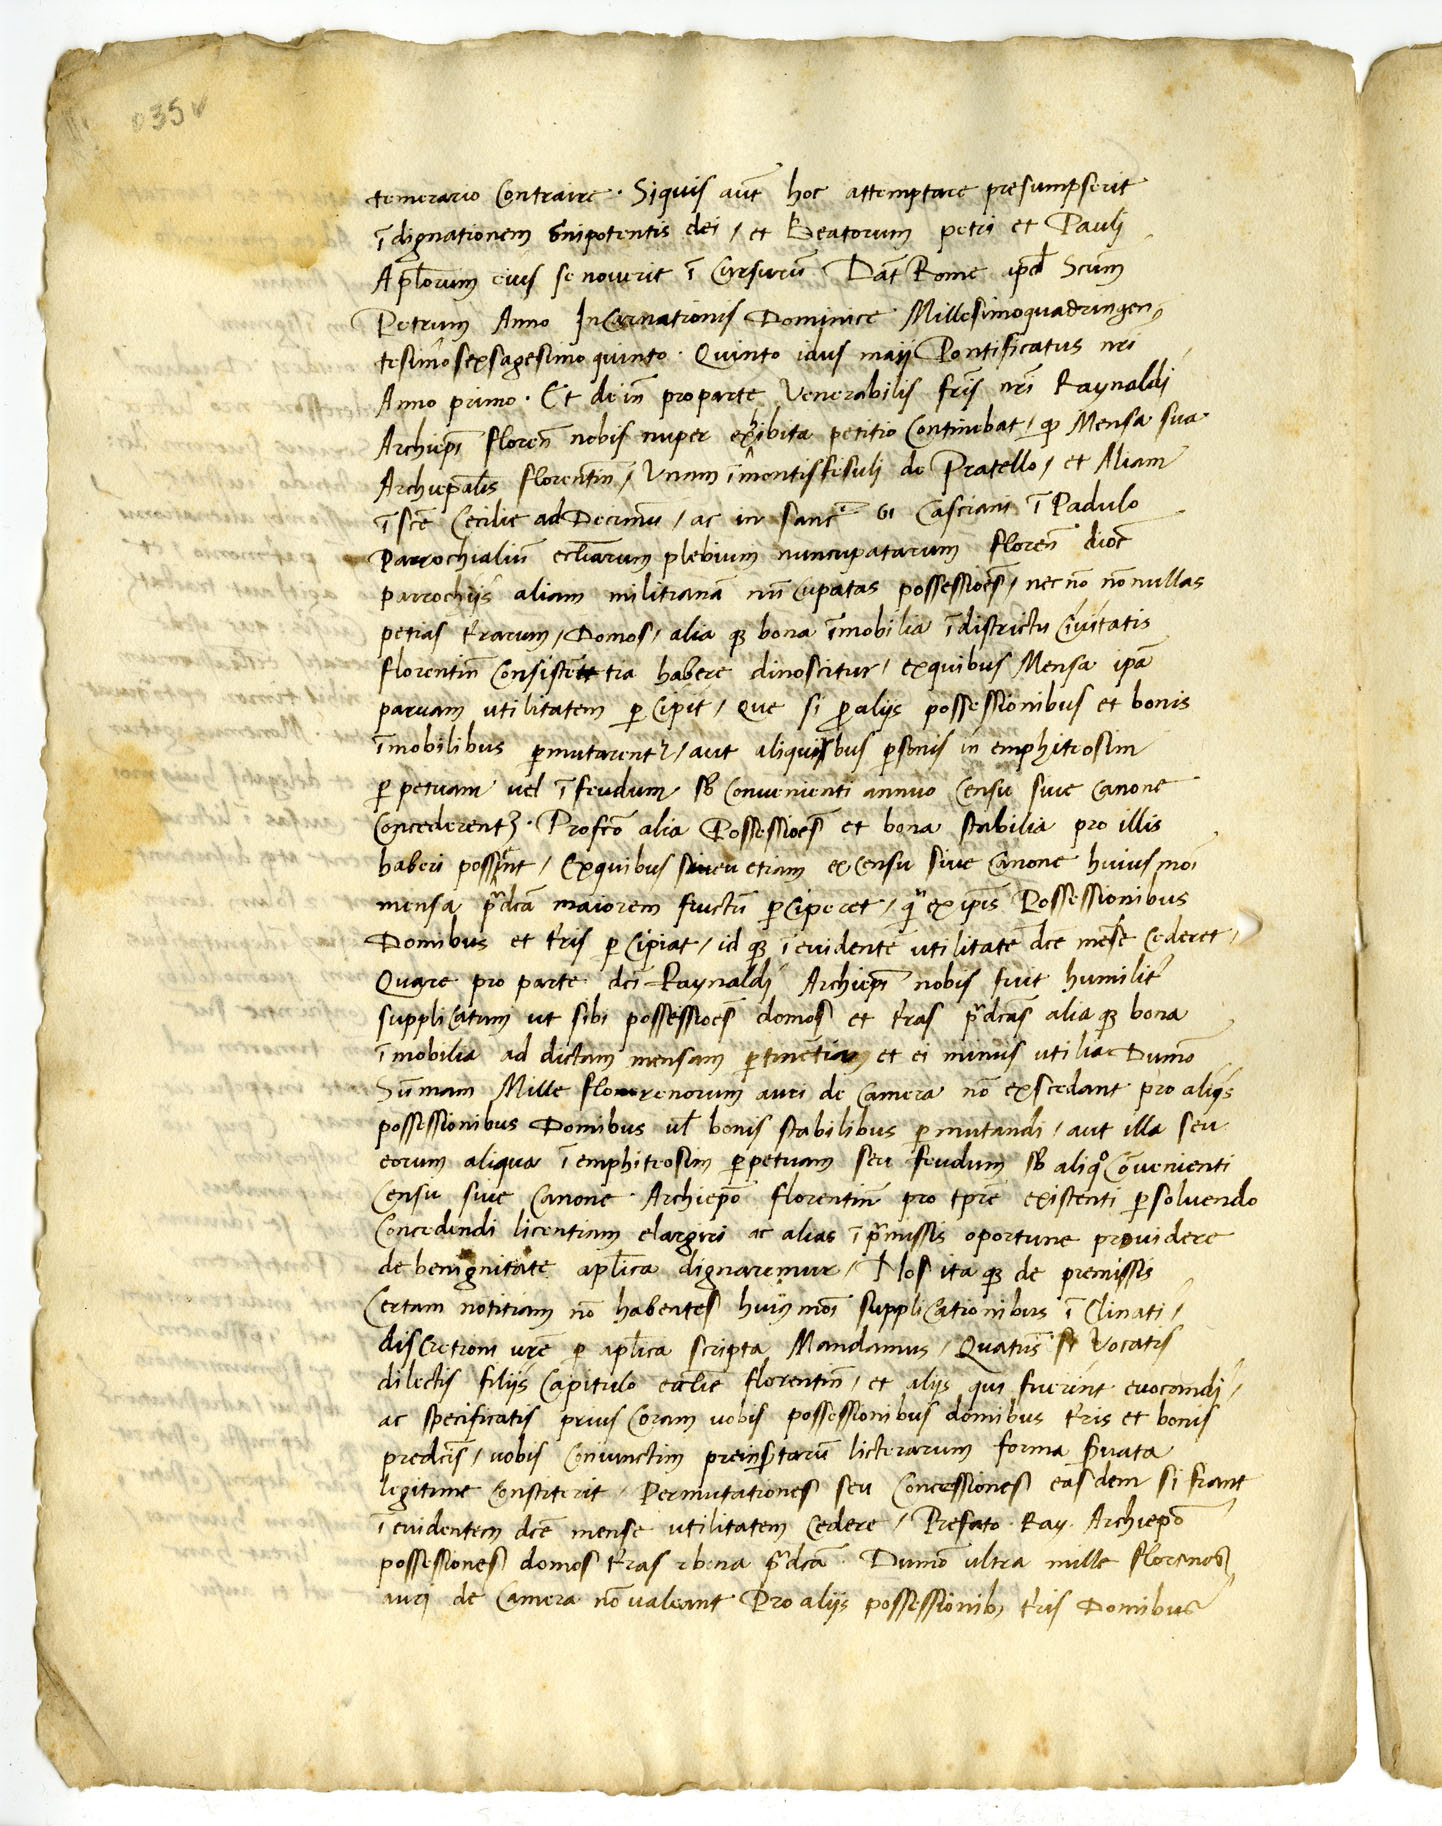 035v
temerario Contraire · Siquis aut̄ hoc attemptare presumpserit
ī dignationem ōnipotentis dei / et Beatorum petri et Paulj
Apl̄orum eius se noverit ī Cursurū Dat̄ Rome apd̄ Scūm
Petrum Anno InCarnationis Dominice Millesimoquadringen /
tesimosexsagesimo quinto · Quinto idus maij Pontificatus nr̄i
Anno primo · Et deīn proparte Venerabilis fr̄is nr̄i Raynaldi
Archiep̄i floren̄ nobis nuper exhibita petitio Continebat / qp̄ Mensa sua
Archiepal̄is florentin̄ / Unum ī montisfisulj de Pratello / et Aliam
ī sc̄e Cecilie ad Decimū / ac in sanc̄ti Casciani ī Padulo
Parrochialiū eccl̄iarum plebium nuncupatarum floren̄ dioc̄
parrochijs aliam militianā nūCupatas possessioēs / necnō nōnullas
petias tr̄arum / Domos / alia qȝ bona īmobilia ī districtu Ciuitatis
florentin̄ Consistentia habere dinoscitur / exquibus Mensa ip̄a
paruam utilitatem ꝑCipit / Que si ꝓ aliis possessionibus et bonis
īmobilibus ꝑmutarent᷑ / aut aliquibus ꝑsonis in emphiteosim
ꝑpetuam uel ī feudum sb̄ Conuenienti annuo Censu siue Canone
Concederentȝ · Profc̄o alia Possessioēs et bona stabilia pro illis
haberi possent / Exquibus seu etiam ex Censu siue Canone huiusmōi
mensa p̄dc̄a maiorem fructū ꝑCiperet / q̄ ex ip̄is Possessionibus
Domibus et tr̄is ꝑCipiat / id qȝ ī euidente utilitate dc̄e mēse Cederet /
Quare pro parte dc̄i Raynaldi Archiep̄i nobis fuit humilit᷑
suppliCatum ut sibi possessioēs domos et tr̄as p̄dc̄as alia qȝ bona
īmobilia ad dictam mensam ꝑtinētia et ei minus utilia Dumō
Sūmam Mille florenorum auri de Camera nō excedant pro aliis
possessionibus Domibus ul̄ bonis stabilibus ꝑmutandi / aut illa seu
eorum aliqua ī emphiteosim ꝑpetuam seu feudum sb̄ aliqº Cōuenienti
Censu siue Canone · Archiepō florentin̄ pro tp̄re existenti ꝑsoluendo
Concedendi licentiam elargiri ac alias ī p̄missis oportune prouidere
de benignitate apl̄ica dignaremur / Nos ita qȝ de premissis
Certam notitiam nō habentes huiusmōi suppliCationibus ī Clinati /
discretioni ur̄e ꝑ apl̄ica scripta Mandamus / Quatinus si Vocatis
dilectis filijs Capitulo eccl̄ie florentin̄ / et alijs qui fuerint euocandi /
ac specificatis prius Coram uobis possessionibus domibus tr̄is et bonis
predc̄is / uobis Coniunctim preinsertarū licterarum forma s̄uata
legitime Constiterit / Permutationes seu Concessiones easdem si fiant
ī euidentem dc̄e mense utilitatem Cedere / Prefato · Ray · Archiepō
possessiones domos tr̄as & bona p̄dc̄a · Dumō ultra mille florenos
auri de Camera nō ualeant Pro alijs possessionibȝ tr̄is Domibus